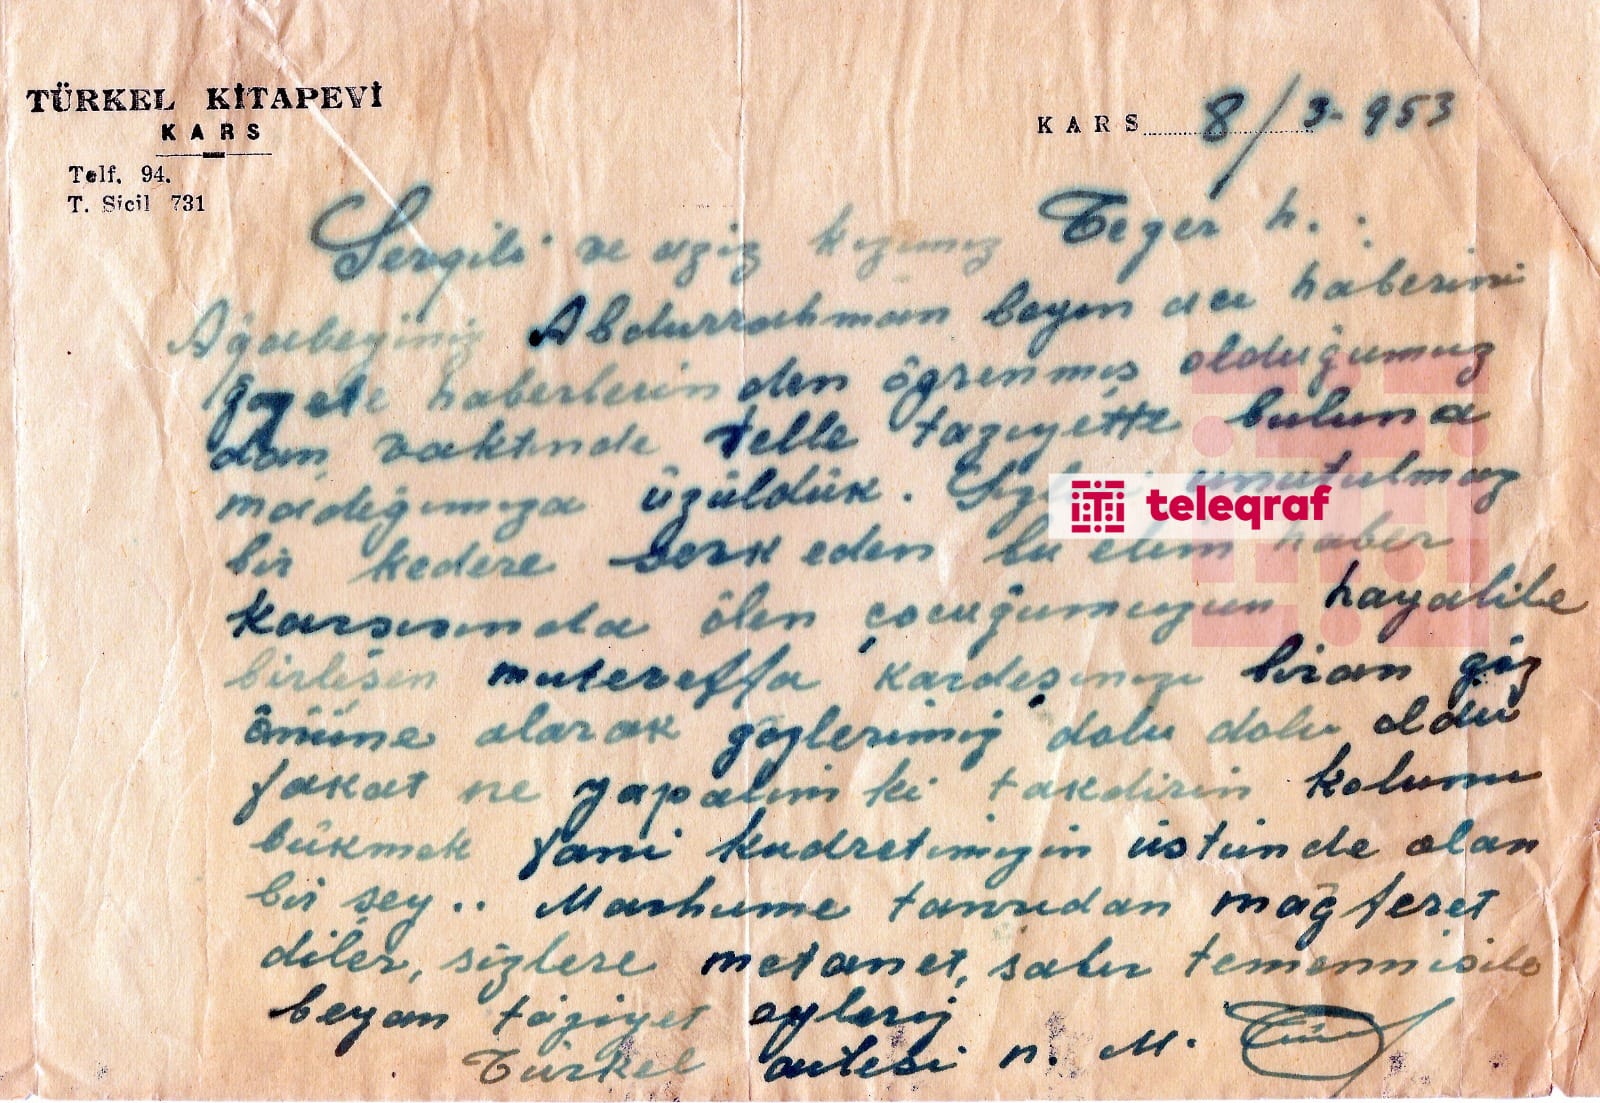 TÜRKEL KİTAPEVİ
KARS
Telf. 94.
T. Sicil 731
KARS 8/3-953
Sevgili ve aziz kızımız Teger h. :
Ağabeyiniz Abdurrahman beyin acı haberini
gazete haberlerinden öğrenmiş olduğumuz
dan vaktinde telle taziyette buluna
madığımıza üzüldük. Sizleri unutulmaz
bir kedere serk eden bu elim haber
karşısında ölen çocuğumuzun hayalile
birleşen muteveffa kardeşinizi biran göz
önüne alarak gözlerimiz dolu dolu oldu
fakat ne yapalım ki takdirin kolunu
bükmek fani kudretimizin üstünde olan
bir şey.. Marhume tanrıdan mağferet
diler, sizlere metanet, sabır temennisile
beyan tâziyet eyleriz
Türkel ailesi n. M.
teleqraf